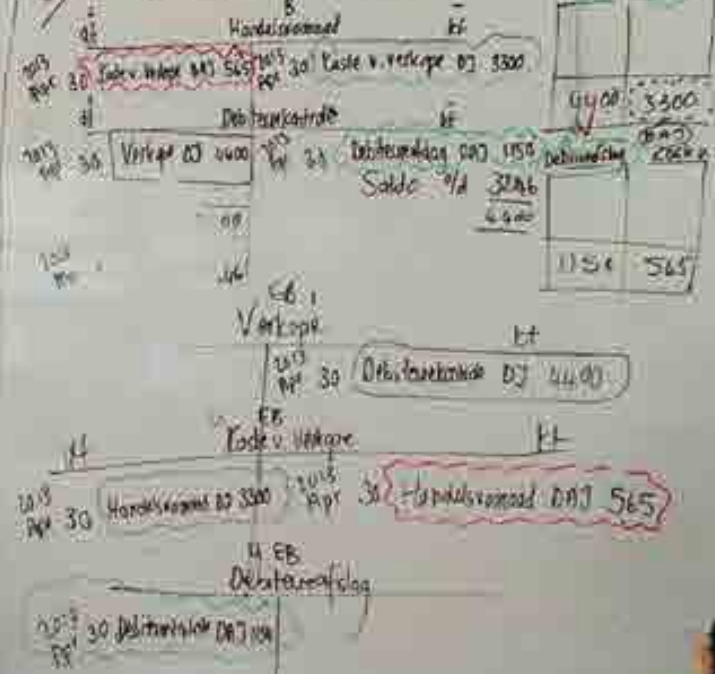 B
dt Handelsvoorraad kt
2013 Apr 30 Koste v. Verkope DAJ 565 2013 Apr 30 Koste v. verkope DJ 3300
4400 3300
dt Debiteurekontrole kt
2013 Apr 30 Verkope DJ 4400 2013 Apr 30 Debiteureafslag DAJ 1154 Debiteureafslag
Saldo o/d 3246
4400
1154 565
EB
Verkope
kt
2013 Apr 30 Debiteurekontrole DJ 4400
EB
dt Koste v. Verkope kt
2013 Apr 30 Handelsvoorraad DJ 3300 2013 Apr 30 Handelsvoorraad DAJ 565
EB
Debiteureafslag
2013 Apr 30 Debiteurekontrole DAJ 1154